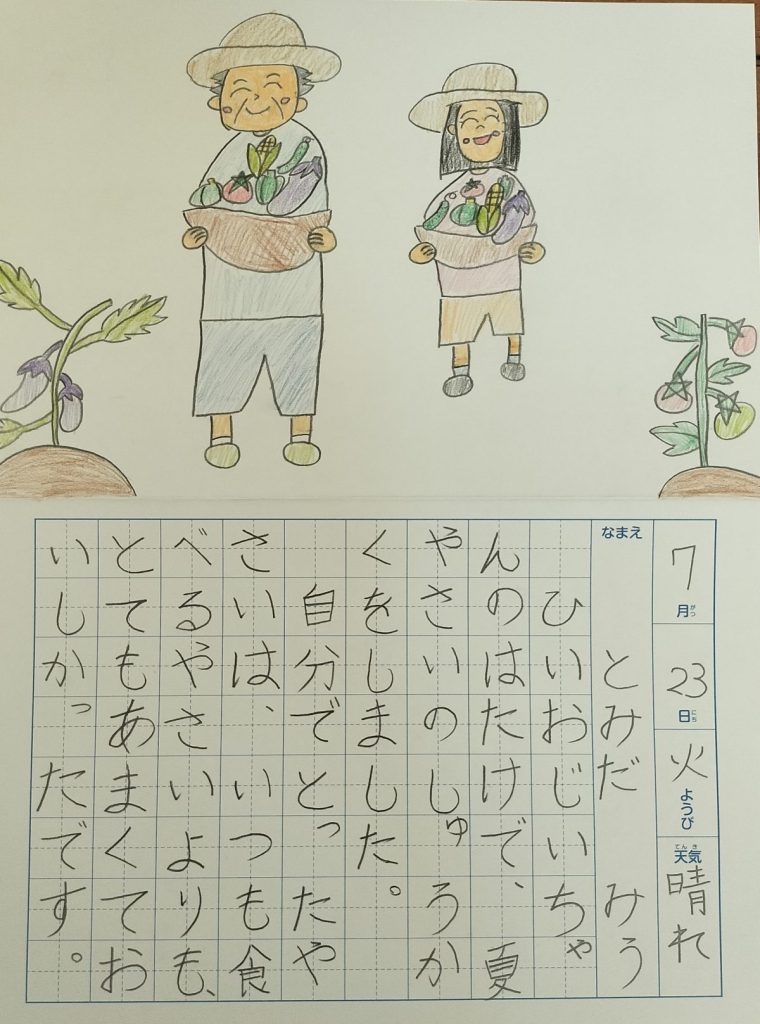 7月がつ 23日にち 火ようび 天気てんき 晴れ
なまえ とみだ みう
ひいおじいちゃ
んのはたけで、夏
やさいのしゅうか
くをしました。
自分でとったや
さいは、いつも食
べるやさいよりも、
とてもあまくてお
いしかったです。